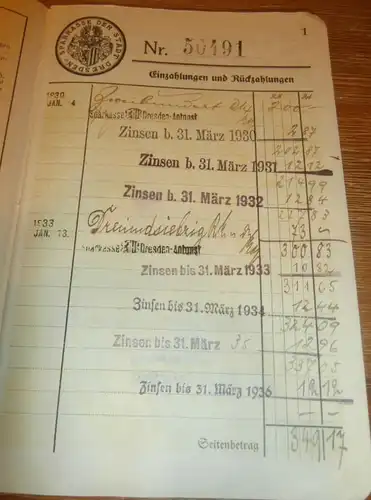 1
SPARKASSE DER STADT DRESDEN
Nr. 50491
Einzahlungen und Rückzahlungen
1930
JAN. 4 200 —
Sparkasse Dresden-
Zinsen b. 31. März 1930 2 87
202 87
Zinsen b. 31. März 1931 12 12
214 99
Zinsen b. 31. März 1932 12 84
227 83
1933
JAN. 13. Dreiundsiebzig 73 —
Sparkasse Dresden- 300 83
Zinsen bis 31. März 1933 10 82
311 65
Zinsen bis 31. März 1934 12 44
324 09
Zinsen bis 31. März 35 12 96
337 05
Zinsen bis 31. März 1936 12 12
— —
Seitenbetrag 349 17